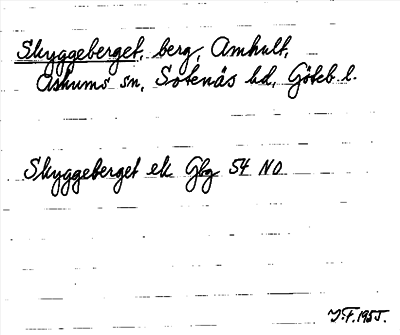 Skyggeberget, berg, Amhult,
Askums sn, Sotenäs hd, Göteb. l.
Skyggeberget ek Gbg 54 NO
J.F. 1955.